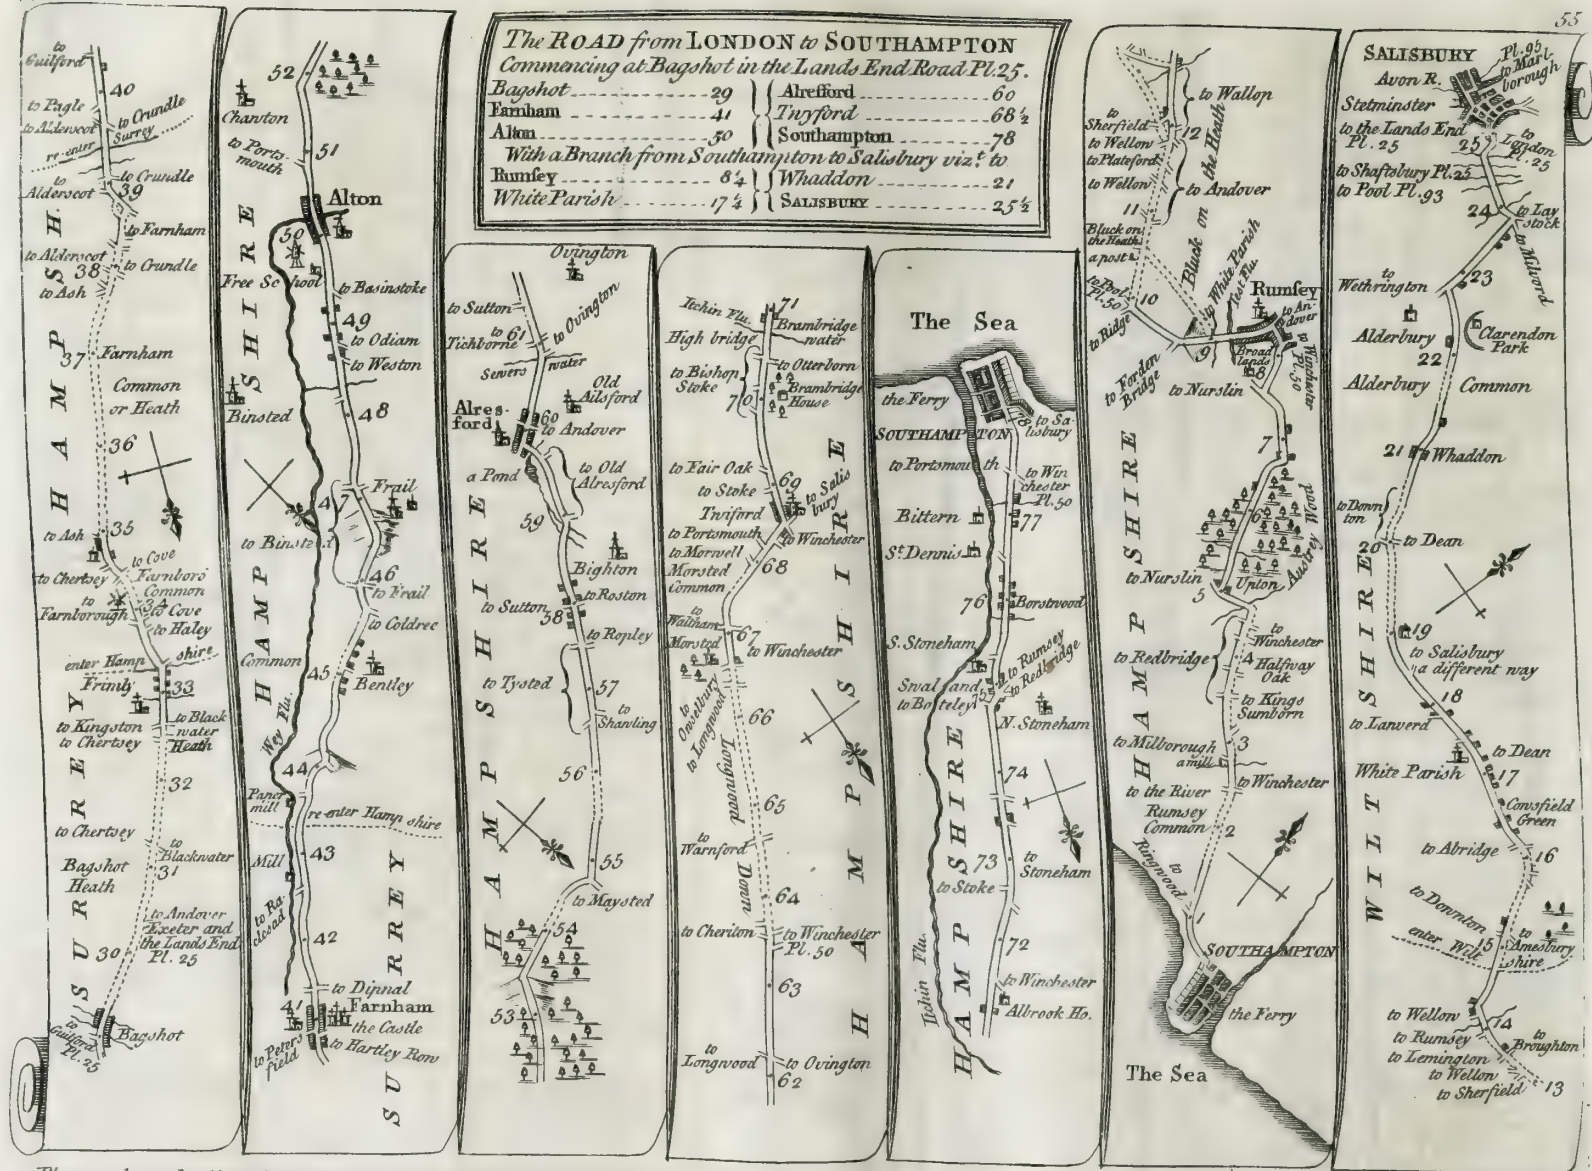 55
The ROAD from LONDON to SOUTHAMPTON
Commencing at Bagshot in the Lands End Road Pl. 25.
Bagshot 29
Farnham 41
Alton 50
Alresford 60
Twyford 68½
Southampton 78
With a Branch from Southampton to Salisbury vizt. to
Rumsey 8¼
White Parish 17¼
Whaddon 21
SALISBURY 25½
to Guilford
40
to Pagle
to Alderscot
to Crundle
Surrey
re-enter
to Crundle
to Alderscot
39
to Farnham
to Alderscot
38
to Crundle
to Ash
37
Farnham
Common
or Heath
HAMPSH.
36
35
to Ash
to Cove
to Chertsey
Farnboro'
Common
34
to Farnborough
to Cove
to Haley
enter Hamp
shire
Frimly
33
to Kingston
to Chertsey
to Black
water
Heath
32
SURREY
to Chertsey
to Blackwater
31
Bagshot
Heath
to Andover
Exeter and
the Lands End
Pl. 25
30
to Guilford
Pl. 25
Bagshot
52
Chawton
to Ports-
mouth
51
Alton
50
Free School
to Basinstoke
49
to Odiam
to Weston
Binsted
48
HAMPSHIRE
Frail
47
to Binsted
46
to Frail
to Coldrec
Common
45
Bentley
Wey Flu.
44
Paper
mill
re-enter Hampshire
Mill
43
42
SURREY
to Dipnal
41
Farnham
the Castle
to Peters
field
to Hartley Row
Ovington
to Sutton
to Ovington
to
Tichborne
61
Sewers
water
Old
Ailsford
Alres-
ford
60
to Andover
a Pond
to Old
Alresford
59
Bighton
to Sutton
to Roston
58
to Ropley
to Tysted
57
to
Shawling
56
HAMPSHIRE
55
to Maysted
54
53
Itchin Flu.
71
Brambridge
water
High bridge
to Otterborn
to Bishop
Stoke
70
Brambridge
House
to Fair Oak
69
to Salis
bury
to Stoke
Twiford
to Portsmouth
to Winchester
to Morwell
68
Morsted
Common
to
Waltham
67
Morsted
to Winchester
to Owselbury
to Longwood
66
Longwood Down
65
HAMPSHIRE
to
Warnford
64
to Cheriton
to Winchester
Pl. 50
63
to
Longwood
to Ovington
62
The Sea
the Ferry
78
to Sa-
lisbury
SOUTHAMPTON
to Portsmouth
to Win
chester
Pl. 50
Bittern
77
St. Dennis
76
Borstwood
S. Stoneham
to Rumsey
to Redbridge
Swathland
to Boteley
75
N. Stoneham
74
HAMPSHIRE
73
to
Stoneham
to Stoke
72
Itchin Flu.
to Winchester
Albrook Ho.
to Wallop
to
Sherfield
12
to Wellow
to Plateford
to Wellow
to Andover
the Heath
11
Bluck on
the Heath
a post
Bluck on
to White Parish
Test Flu.
to Pool
Pl. 50
10
Rumsey
to An-
dover
to Ridge
9
Broad
lands
8
to Winchester
Pl. 50
to Forden
Bridge
to Nurslin
7
6
Austrey Wood
to Nurslin
Upton
5
HAMPSHIRE
to
Winchester
to Redbridge
4
Halfway
Oak
to Kings
Sumborn
to Milborough
3
a mill
to Winchester
to the River
Rumsey
Common
2
to
Ringwood
1
SOUTHAMPTON
the Ferry
The Sea
SALISBURY
Pl. 95
to Marl-
borough
Avon R.
Stetminster
to the Lands End
Pl. 25
25
to
London
Pl. 25
to Shaftsbury Pl. 25
to Pool Pl. 93
24
to Lay
stock
to Milvord
23
to
Wethrington
Alderbury
Clarendon
Park
22
Alderbury
Common
21
Whaddon
to Down
ton
20
to Dean
19
to Salisbury
a different way
WILTSHIRE
18
to Lanverd
to Dean
White Parish
17
Cowsfield
Green
to Abridge
16
to Downton
enter Wilt
shire
15
to
Amesbury
to Wellow
14
to Rumsey
to
Broughton
to Lemington
to Wellow
to Sherfield
13